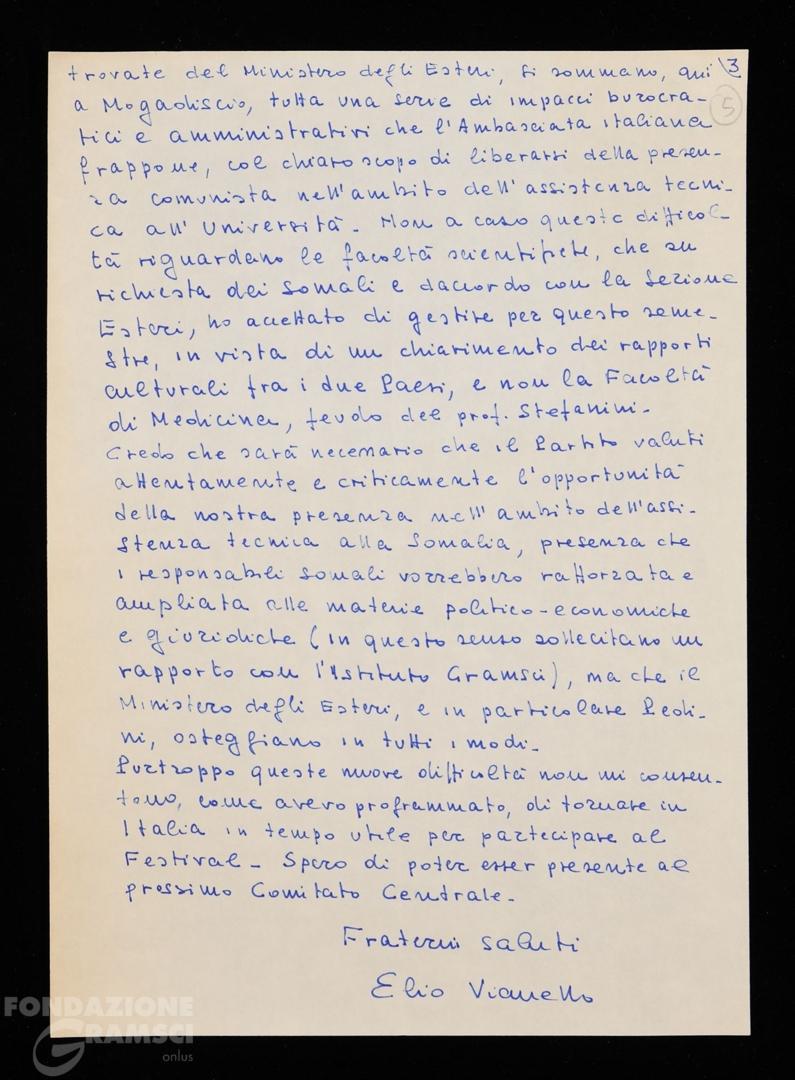 trovate del Ministero degli Esteri, si sommano, qui \3
a Mogadiscio, tutta una serie di impacci burocra- 5
tici e amministrativi che l'Ambasciata italiana
frappone, col chiaro scopo di liberarsi della presen-
za comunista nell'ambito dell'assistenza tecni-
ca all'Università. Non a caso queste difficol-
tà riguardano le facoltà scientifiche, che su
richiesta dei Somali e d'accordo con la Sezione
Esteri, ho accettato di gestire per questo seme-
stre, in vista di un chiarimento dei rapporti
culturali fra i due Paesi, e non la Facoltà
di Medicina, feudo del prof. Stefanini.
Credo che sarà necessario che il Partito valuti
attentamente e criticamente l'opportunità
della nostra presenza nell'ambito dell'assi-
stenza tecnica alla Somalia, presenza che
i responsabili somali vorrebbero rafforzata e
ampliata alle materie politico-economiche
e giuridiche (in questo senso sollecitano un
rapporto con l'Istituto Gramsci), ma che il
Ministero degli Esteri, e in particolare Pedi-
ni, osteggiano in tutti i modi.
Purtroppo queste nuove difficoltà non mi consen-
tono, come avevo programmato, di tornare in
Italia in tempo utile per partecipare al
Festival. Spero di poter esser presente al
prossimo Comitato Centrale.
Fraterni saluti
Elio Vianello
FONDAZIONE
GRAMSCI
onlus